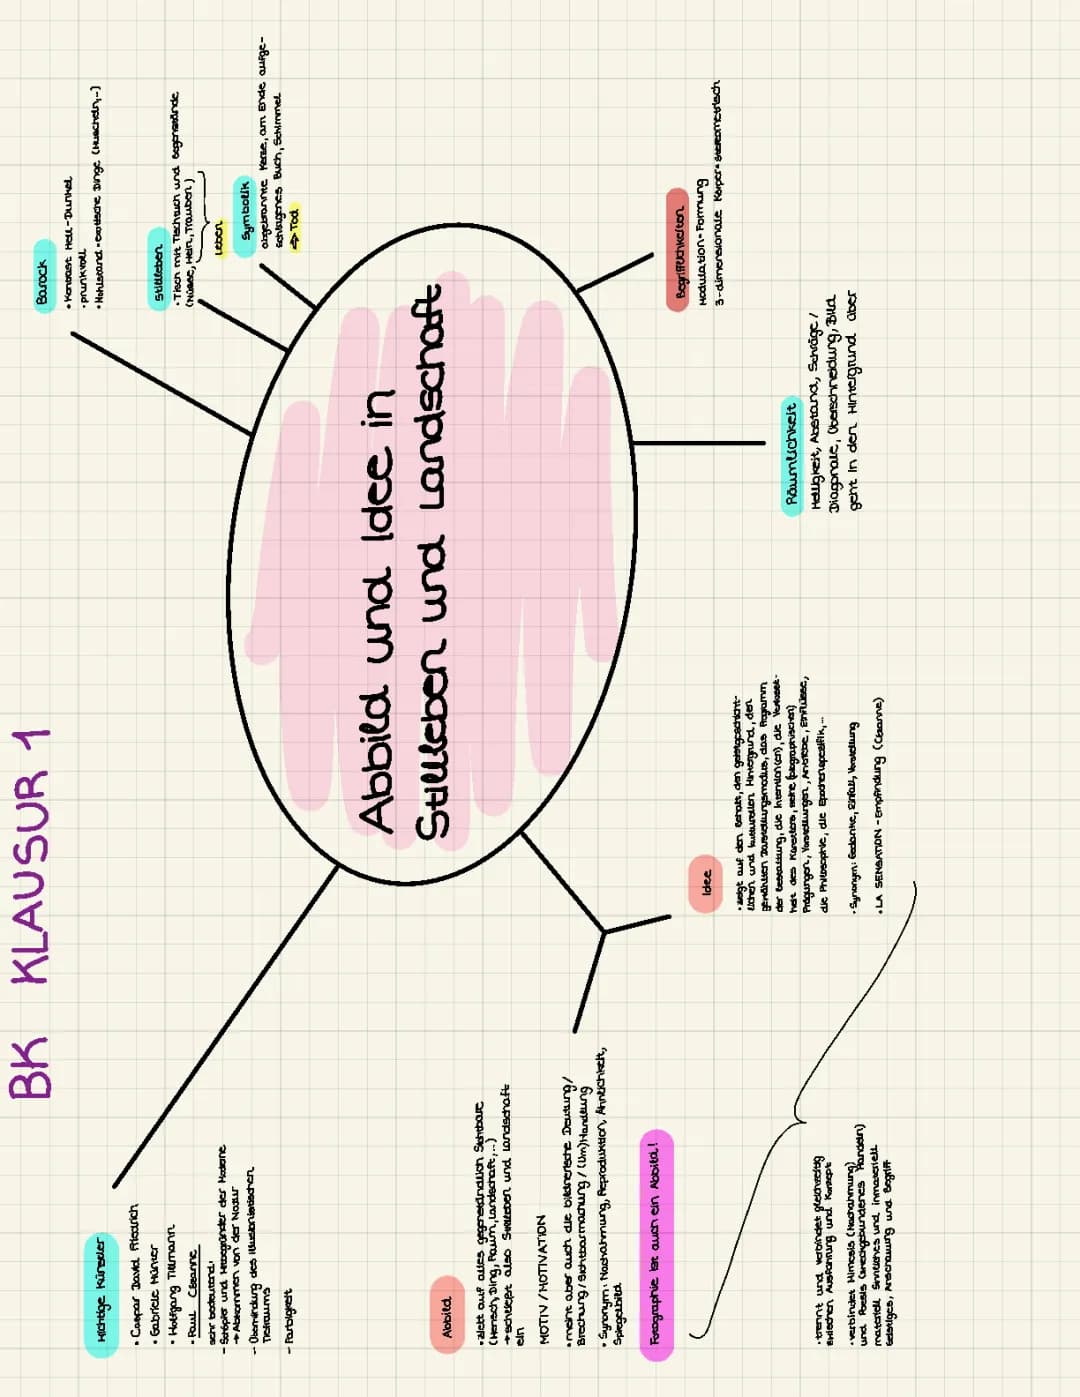 BK KLAUSUR 1
Abbild und Idee in
Stillleben und Landschaft
Wichtige Künstler
• Caspar David
• Gabriele Münter
• Wolfgang Tillmann
• Paul Cézanne
sehr bedeutend:
- Schöpfer und der Moderne
→ Abkommen von der Natur
- Überwindung des illusionistischen
Tiefraums
- Farbigkeit
Abbild
• zielt auf alles gegenständlich Sichtbare
(Mensch, Ding, Raum, Landschaft,...)
→ schließt also Stillleben und Landschaft
ein
MOTIV / MOTIVATION
• meint aber auch die bildnerische Deutung/
Brechung/ Sichtbarmachung / (Um)Handlung
• Synonym: Nachahmung, Reproduktion, Ähnlichkeit,
Spiegelbild
Fotographie ist auch ein Abbild!
Idee
• zielt auf den Gehalt, den geistgeschicht-
lichen und kulturellen Hintergrund, den
gewählten Darstellungsmodus, das Programm
der Gestaltung, die Intention(en), die Verfasst-
heit des Künstlers, seine (biographischen)
Prägungen, Vorstellungen, Anstöße, Einflüsse,
die Philosophie, die Epochenspezifik,...
• Synonym: Gedanke, Einfall, Vorstellung
• LA SENSATION - Empfindung (Cézanne)
• trennt und verbindet gleichzeitig
zwischen Ausführung und Konzept
• verbindet Mimesis (Nachahmung)
und Poesis (zweckgebundenes Handeln)
materiell Sinnliches und immateriell
Geistiges, Anschauung und Begriff
Barock
• Kontrast Hell-Dunkel
• prunkvoll
• Wohlstand = exotische Dinge (Muscheln,..)
Stillleben
• Tisch mit Tischtuch und Gegenstände
(Nüsse, Wein, Trauben)
Leben
Symbolik
abgebrannte Kerze, am Ende aufge-
schlagenes Buch, Schimmel
⇒ Tod
Begrifflichkeiten
Modulation = Formung
3-dimensionale Körper = stereometrisch
Räumlichkeit
Helligkeit, Abstand, Schräge /
Diagonale, Überschneidung, Bild
geht in den Hintergrund über